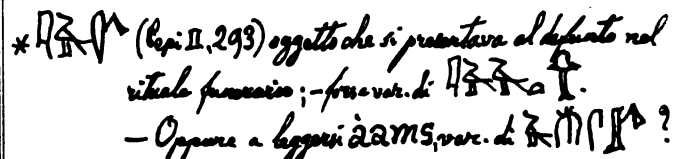 * (Pepi II, 293) oggetto che si presentava al defunto nel
rituale funerario; – forse var. di .
– Oppure a leggersi àams, var. di ?